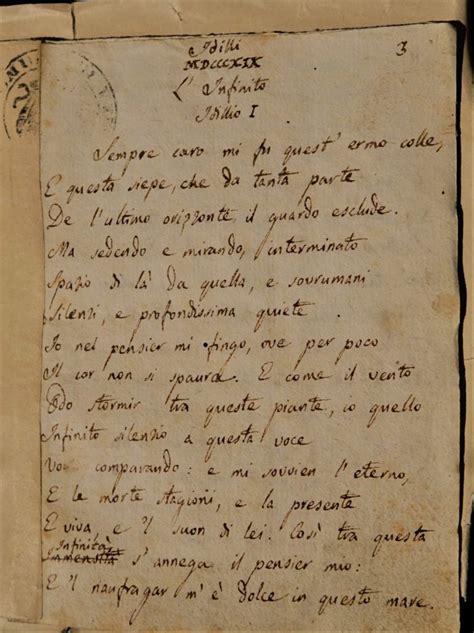 Idilli
MDCCCXIX
3
L' Infinito
Idillio I
Sempre caro mi fu quest' ermo colle,
E questa siepe, che da tanta parte
De l'ultimo orizzonte il guardo esclude.
Ma sedendo e mirando, interminato
Spazio di là da quella, e sovrumani
Silenzi, e profondissima quiete
Io nel pensier mi fingo, ove per poco
Il cor non si spaura. E come il vento
Odo stormir tra queste piante, io quello
Infinito silenzio a questa voce
Vo comparando: e mi sovvien l'eterno,
E le morte stagioni, e la presente
E viva e 'l suon di lei. Così tra questa
Infinità
Immensità s'annega il pensier mio:
E 'l naufragar m' è dolce in questo mare.